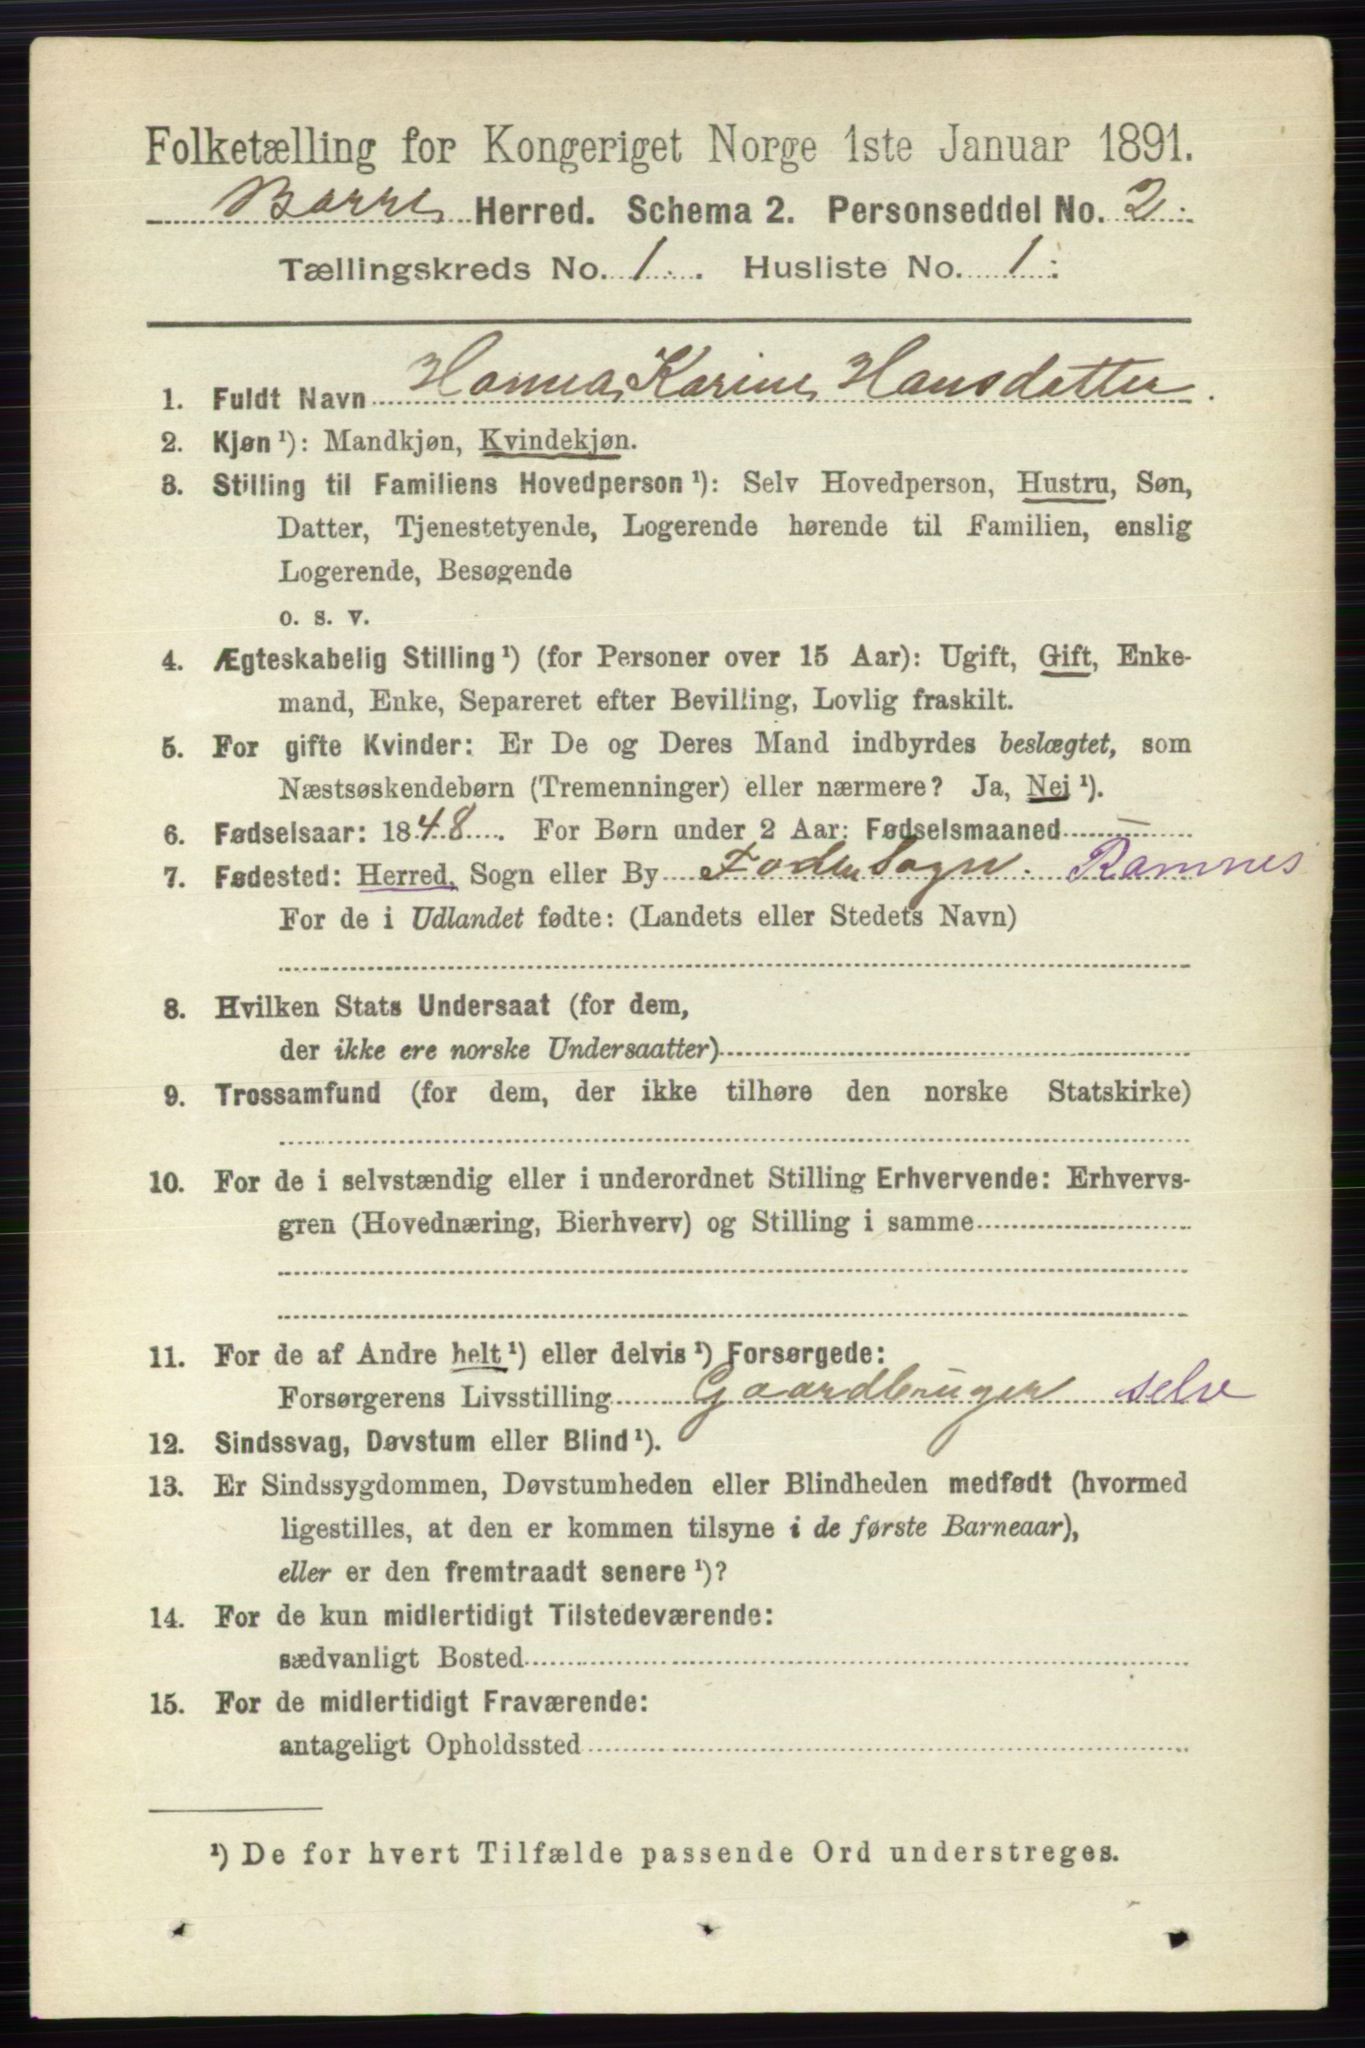 Folketælling for Kongeriget Norge 1ste Januar 1891.
Borre Herred. Schema 2. Personseddel No. 2.
Tællingskreds No. 1. Husliste No. 1.
1. Fuldt Navn Hanna Karine Hansdatter.
2. Kjøn ¹): Mandkjøn, Kvindekjøn.
3. Stilling til Familiens Hovedperson ¹): Selv Hovedperson, Hustru, Søn,
Datter, Tjenestetyende, Logerende hørende til Familien, enslig
Logerende, Besøgende
o. s. v.
4. Ægteskabelig Stilling ¹) (for Personer over 15 Aar): Ugift, Gift, Enke-
mand, Enke, Separeret efter Bevilling, Lovlig fraskilt.
5. For gifte Kvinder: Er De og Deres Mand indbyrdes beslægtet, som
Næstsøskendebørn (Tremenninger) eller nærmere? Ja, Nej ¹).
6. Fødselsaar: 1848. For Børn under 2 Aar: Fødselsmaaned —
7. Fødested: Herred, Sogn eller By Foden Sogn. Ramnes
For de i Udlandet fødte: (Landets eller Stedets Navn)
8. Hvilken Stats Undersaat (for dem,
der ikke ere norske Undersaatter)
9. Trossamfund (for dem, der ikke tilhøre den norske Statskirke)
10. For de i selvstændig eller i underordnet Stilling Erhvervende: Erhvervs-
gren (Hovednæring, Bierhverv) og Stilling i samme
11. For de af Andre helt ¹) eller delvis ¹) Forsørgede:
Forsørgerens Livsstilling Gaardbruger selv
12. Sindssvag, Døvstum eller Blind ¹).
13. Er Sindssygdommen, Døvstumheden eller Blindheden medfødt (hvormed
ligestilles, at den er kommen tilsyne i de første Barneaar),
eller er den fremtraadt senere ¹)?
14. For de kun midlertidigt Tilstedeværende:
sædvanligt Bosted
15. For de midlertidigt Fraværende:
antageligt Opholdssted
¹) De for hvert Tilfælde passende Ord understreges.